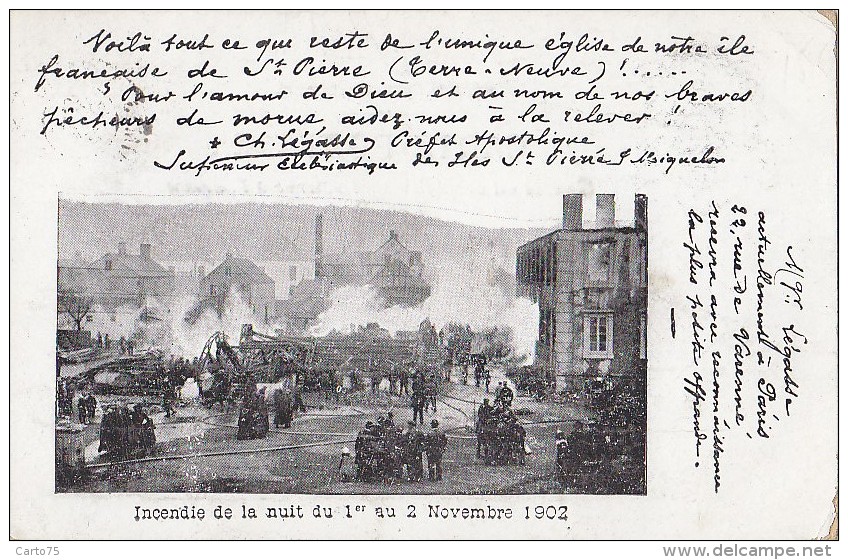 Voilà tout ce que reste de l'unique église de notre île
française de St Pierre (Terre-Neuve)!......
Pour l'amour de Dieu et au nom de nos braves
pêcheurs de morue aidez-nous à la relever!
+ Ch. Légasse, Préfet Apostolique
Supérieur Ecclésiastique des Iles St Pierre & Miquelon
Mgr Légasse
actuellement à Paris
22, rue de Varenne,
recevra avec reconnaissance
la plus petite offrande.
Incendie de la nuit du 1er au 2 Novembre 1902
Carto75
www.delcampe.net